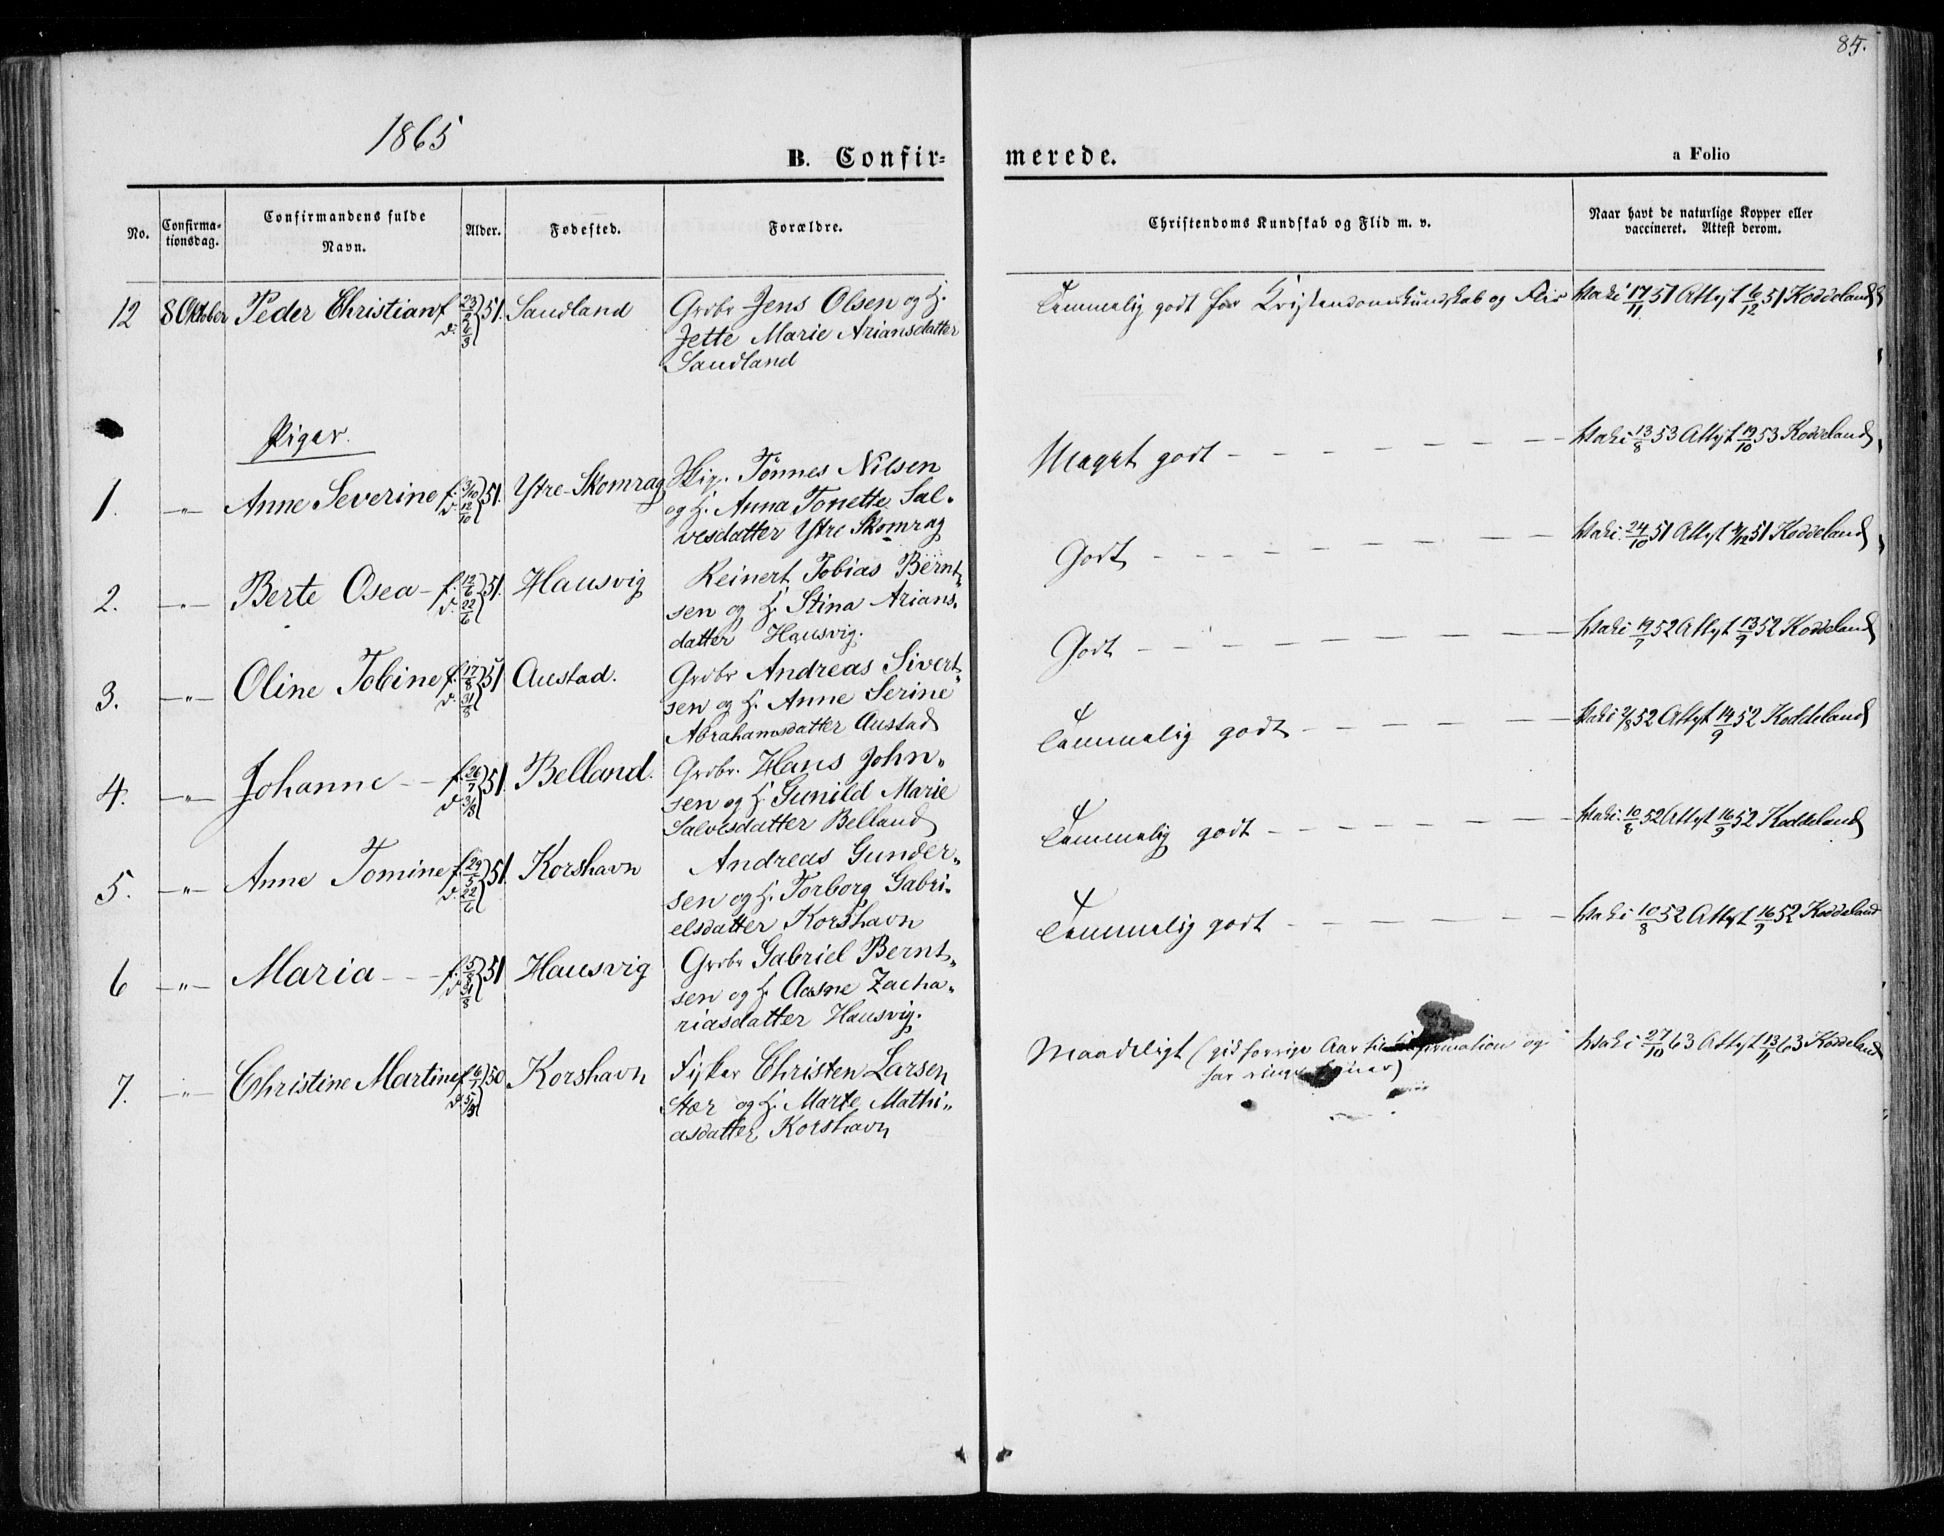 85.
1865
B. Confir=
merede.
a Folio
No.
Confirma-
tionsdag.
Confirmandens fulde
Navn.
Alder.
Fødested.
Forældre.
Christendoms Kundskab og Flid m. v.
Naar havt de naturlige Kopper eller
vaccineret. Attest derom.
12 8 Oktober Peder Christian f. 23/2 51. Sandland Grdbr Jens Olsen og H.
d. 2/3 Jette Marie Ariansdatter
Sandland
Temmelig godt for Kristendomskundskab og Flid Vac: 17/11 51 Attest 6/12 51 Koddeland
Piger.
1. -"- Anne Severine f. 3/10 51. Ytre Skomrag Hig. Tønnes Nilsen
d. 12/10 og H. Anna Tonette Sal-
vesdatter Ytre Skomrag
Meget godt - - - - - Vac: 13/8 53 Attest 19/10 53 Koddeland
2. -"- Berte Osea - f. 12/6 51. Hausvig Reinert Tobias Bernt-
d. 22/6 sen og H. Stina Arians-
datter Hausvig.
Godt - - - - - Vac: 24/10 51 Attest 4/12 51 Koddeland
3. -"- Oline Tobine f. 17/8 51 Austad. Grdbr Andreas Sivert-
d. 31/8 sen og H. Anne Serine
Abrahamsdatter Austad
Godt - - - - - Vac: 52 Attest 13/9 52 Koddeland
4. -"- Johanne - - f. 26/7 51. Belland. Grdbr. Hans John-
d. 3/8 sen og H. Gunild Marie
Salvesdatter Belland
Temmelig godt - - - - Vac: 2/8 52 Attest 14/9 52 Koddeland
5. -"- Anne Tomine f. 29/5 51. Korshavn Andreas Gunder-
d. 22/6 sen og H. Torborg Gabri-
elsdatter Korshavn
Temmelig godt - - - - Vac: 10/8 52 Attest 16/9 52 Koddeland
6 -"- Maria - - - f. 5/8 51 Hausvig Grdbr Gabriel Bernt-
d. 31/8 sen og H. Aasne Zacha-
riasdatter Hausvig.
Temmelig godt - - - - Vac: 10/8 52 Attest 16/9 52 Koddeland
7. -"- Christine Martine f. 6/1 50 Korshavn Fisker Christen Larsen
d. 5/3 Stær og H. Marte Mathi-
asdatter Korshavn
Maadeligt ( forrige Aar til Confirmation og
har ringe Evner)
Vac: 27/10 63 Attest 13/11 63 Koddeland